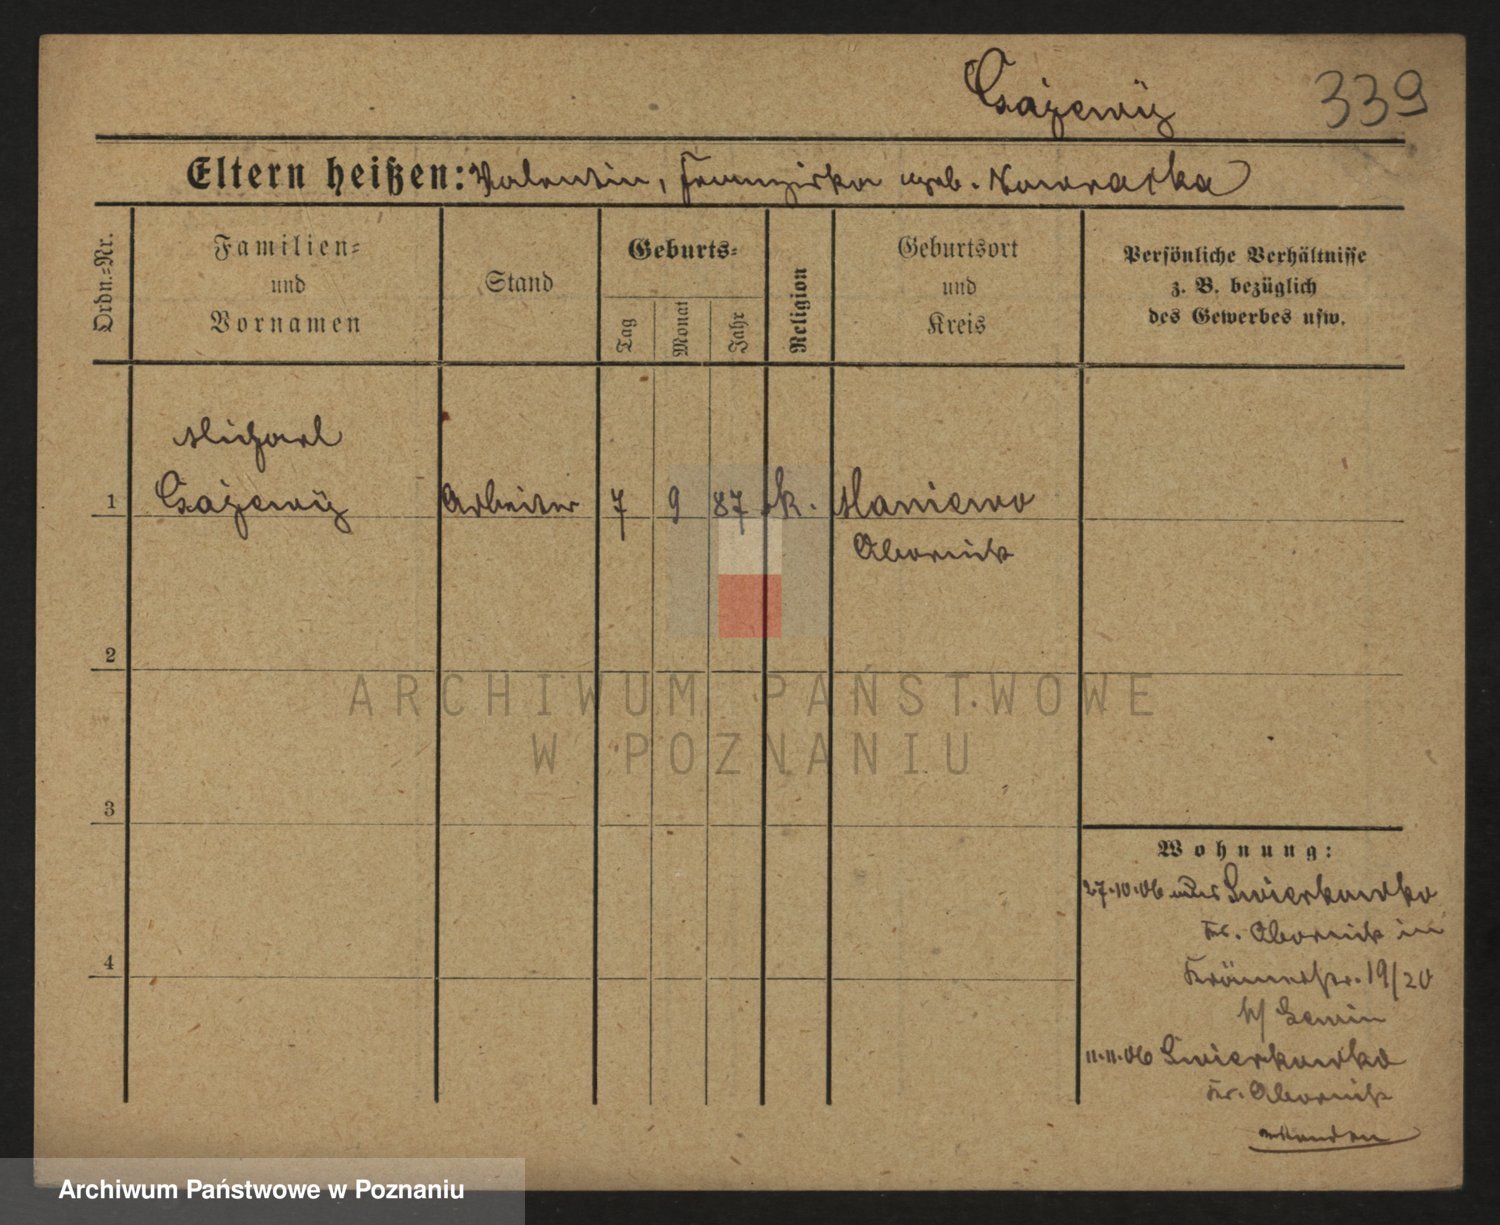 Czajewicz 339
Eltern heißen: Valentin, Franziska geb. Nowratka
Ordn.-Nr.
Familien-
und
Vornamen
Stand
Geburts-
Tag
Monat
Jahr
Religion
Geburtsort
und
Kreis
Persönliche Verhältnisse
z. B. bezüglich
des Gewerbes usw.
Michael
1 Arbeiter 7 9 87 k. Maniewo
Obornick
2
ARCHIWUM PAŃSTWOWE
W POZNANIU
3
Wohnung:
4
27.10.06 aus Zwierkowko
Kr. Obornick in
Krämerstr. 19/20
b/ Lewin
11.11.06 Zwierkowko
Kr. Obornick
Archiwum Państwowe w Poznaniu